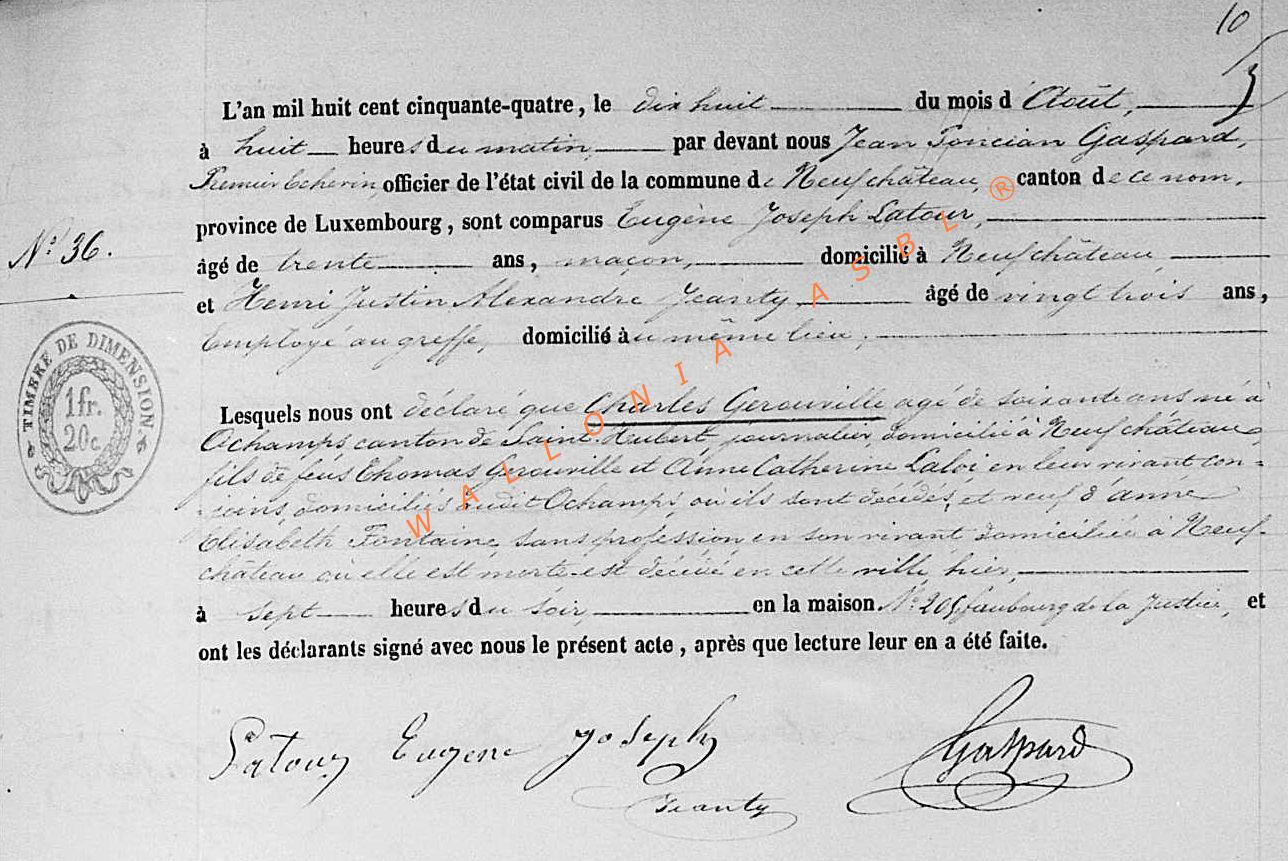 10
L'an mil huit cent cinquante-quatre, le dix huit du mois d'Août,
à huit heures du matin, par devant nous Jean Poncian Gaspard,
Premier Echevin, officier de l'état civil de la commune de Neufchâteau, canton de ce nom,
province de Luxembourg, sont comparus Eugène Joseph Latour,
N° 36.
âgé de trente ans, maçon, domicilié à Neufchâteau
et Henri Justin Alexandre Jeanty âgé de vingt trois ans,
Employé au greffe, domicilié au même lieu,
TIMBRE DE DIMENSION
1 fr.
20c.
Lesquels nous ont déclaré que Charles Gerouville agé de soixante ans né à
Ochamps canton de Saint-Hubert journalier domicilié à Neufchâteau
fils de feus Thomas Gerouville et Anne Catherine Laloi en leur vivant con-
-joins, domiciliés audit Ochamps, où ils sont décédés, et veuf d'anne
Elisabeth Fontaine, sans profession, en son vivant domiciliée à Neuf-
château où elle est morte est décédé en cette ville, hier,
à sept heures du soir, en la maison N° 205 faubourg de la Justice, et
ont les déclarants signé avec nous le présent acte, après que lecture leur en a été faite.
Latour Eugene Joseph
Gaspard
Jeanty
WALLONIA ASBL ®